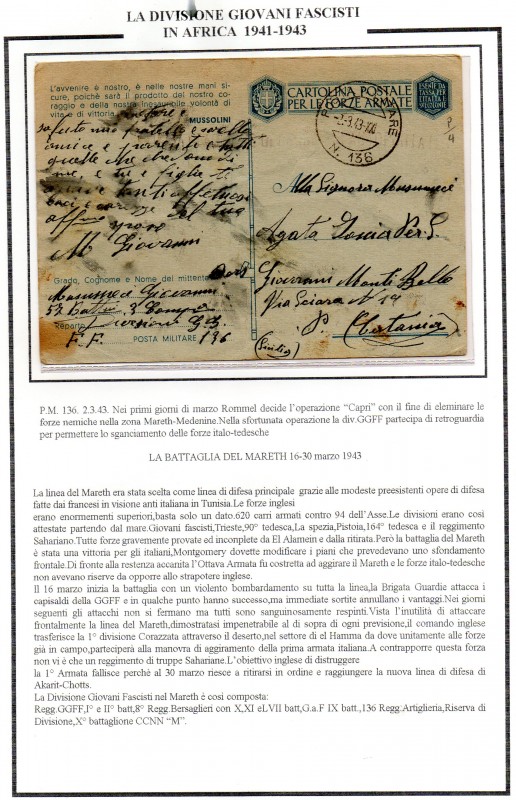 LA DIVISIONE GIOVANI FASCISTI
IN AFRICA 1941-1943
L'avvenire è nostro, è nelle nostre mani si-
cure, poichè sarà il prodotto del nostro co-
raggio e della nostra inesauribile volontà di
vita e di vittoria.
MUSSOLINI
CARTOLINA POSTALE
PER LE FORZE ARMATE
ESENTE DA
TASSA PER
L'ITALIA E
COLONIE
2.3.43.XXI
N. 136
saluto mio fratello e sorelle
amici e parenti e tutti
quelle che
me, e tu e figlie ti
baci e
aff
M Giovanni
Alla Signora Musumeci
Agata
Giovanni Monti Bello
Via Sciara N 14
Catania
(Sicilia)
Grado, Cognome e Nome del mittente
Musumeci Giovanni
57 Batt. 3 Comp.
Reparto
F. F. POSTA MILITARE 136
P.M. 136. 2.3.43. Nei primi giorni di marzo Rommel decide l'operazione “Capri” con il fine di eleminare le
forze nemiche nella zona Mareth-Medenine.Nella sfortunata operazione la div.GGFF partecipa di retroguardia
per permettere lo sganciamento delle forze italo-tedesche
LA BATTAGLIA DEL MARETH 16-30 marzo 1943
La linea del Mareth era stata scelta come linea di difesa principale grazie alle modeste preesistenti opere di difesa
fatte dai francesi in visione anti italiana in Tunisia.Le forze inglesi
erano enormementi superiori,basta solo un dato.620 carri armati contro 94 dell'Asse.Le divisioni erano cosi
attestate partendo dal mare.Giovani fascisti,Trieste,90° tedesca,La spezia,Pistoia,164° tedesca e il reggimento
Sahariano.Tutte forze gravemente provate ed inconplete da El Alamein e dalla ritirata.Però la battaglia del Mareth
è stata una vittoria per gli italiani,Montgomery dovette modificare i piani che prevedevano uno sfondamento
frontale.Di fronte alla resistenza accanita l'Ottava Armata fu costretta ad aggirare il Mareth e le forze italo-tedesche
non avevano riserve da opporre allo strapotere inglese.
Il 16 marzo inizia la battaglia con un violento bombardamento su tutta la linea,la Brigata Guardie attacca i
capisaldi della GGFF e in qualche punto hanno successo,ma immediate sortite annullano i vantaggi.Nei giorni
seguenti gli attacchi non si fermano ma tutti sono sanguinosamente respinti.Vista l'inutilità di attaccare
frontalmente la linea del Mareth,dimostratasi impenetrabile al di sopra di ogni previsione,il comando inglese
trasferisce la 1° divisione Corazzata attraverso il deserto,nel settore di el Hamma da dove unitamente alle forze
già in campo,parteciperà alla manovra di aggiramento della prima armata italiana.A contrapporre questa forza
non vi è che un reggimento di truppe Sahariane.L'obiettivo inglese di distruggere
la 1° Armata fallisce perchè al 30 marzo riesce a ritirarsi in ordine e raggiungere la nuova linea di difesa di
Akarit-Chotts.
La Divisione Giovani Fascisti nel Mareth è cosi composta:
Regg.GGFF,I° e II° batt,8° Regg.Bersaglieri con X,XI eLVII batt,G.a.F IX batt.,136 Regg.Artiglieria,Riserva di
Divisione,X° battaglione CCNN “M”.